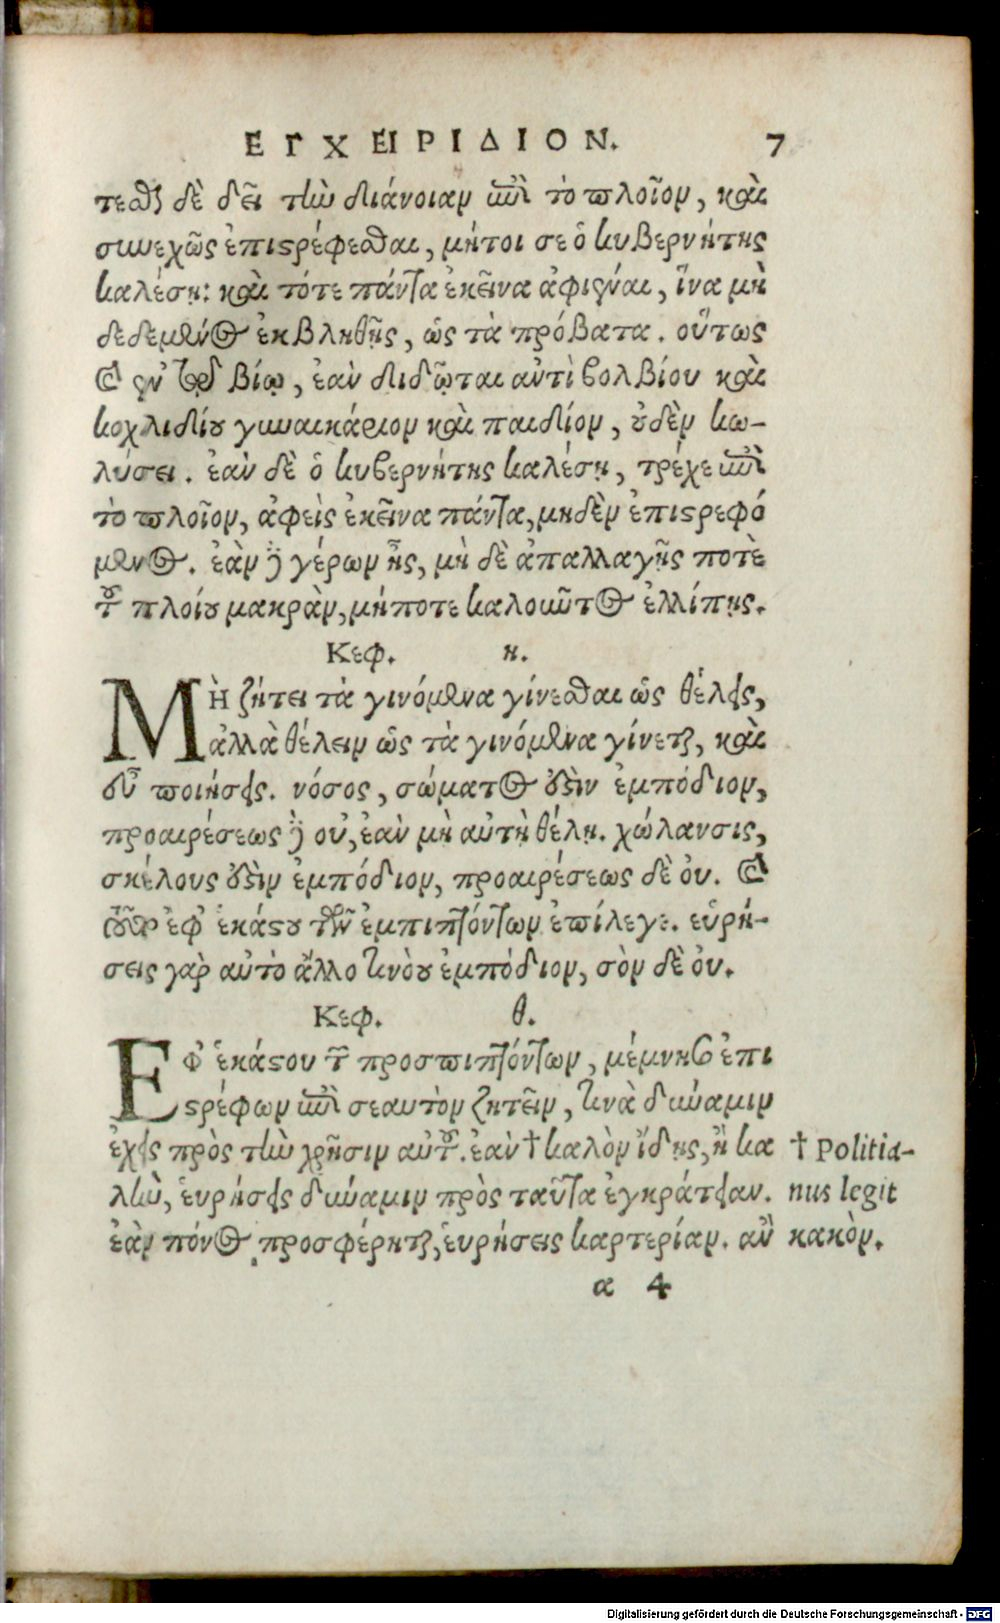 ΕΓΧΕΙΡΙΔΙΟΝ. 7
τεσθαι δὲ δεῖ τὴν διάνοιαν ἐπὶ τὸ πλοῖον, καὶ
συνεχῶς ἐπιστρέφεσθαι, μήτοι σε ὁ κυβερνήτης
καλέσῃ: καὶ τότε πάντα ἐκεῖνα ἀφιέναι, ἵνα μὴ
δεδεμένος ἐκβληθῇς, ὡς τὰ πρόβατα. οὕτως
καὶ ἐν τῷ βίῳ, ἐὰν διδῶται ἀντὶ βολβίου καὶ
κοχλιδίου γυναικάριον καὶ παιδίον, οὐδὲν κω-
λύσει. ἐὰν δὲ ὁ κυβερνήτης καλέσῃ, τρέχε ἐπὶ
τὸ πλοῖον, ἀφεὶς ἐκεῖνα πάντα, μηδὲν ἐπιστρεφό
μενος. ἐὰν δὲ γέρων ᾖς, μὴ δὲ ἀπαλλαγῇς ποτὲ
τοῦ πλοίου μακρὰν, μήποτε καλοῦντος ἐλλίπῃς.
Κεφ. η.
ΜΗ ζήτει τὰ γινόμενα γίνεσθαι ὡς θέλεις,
ἀλλὰ θέλειν ὡς τὰ γινόμενα γίνεται, καὶ
εὖ ποιήσεις. νόσος, σώματος ἐστὶν ἐμπόδιον,
προαιρέσεως δὲ οὐ, ἐὰν μὴ αὐτὴ θέλῃ. χώλανσις,
σκέλους ἐστὶν ἐμπόδιον, προαιρέσεως δὲ οὐ. καὶ
τοῦτο ἐφ' ἑκάστου τῶν ἐμπιπτόντων ἐπίλεγε. εὑρή-
σεις γὰρ αὐτὸ ἄλλο τινὸς ἐμπόδιον, σὸν δὲ οὐ.
Κεφ. θ.
ΕΦ' ἑκάστου τῶν προσπιπτόντων, μέμνησο ἐπι
στρέφων ἐπὶ σεαυτὸν ζητεῖν, τινὰ δύναμιν
ἔχεις πρὸς τὴν χρῆσιν αὐτοῦ. ἐὰν † καλὸν ἴδῃς, ἢ κα
λὴν, εὑρήσεις δύναμιν πρὸς ταῦτα ἐγκράτειαν.
ἐὰν πόνος προσφέρηται, εὑρήσεις καρτερίαν. ἂν
† Politia-
nus legit
κακὸν.
α 4
Digitalisierung gefördert durch die Deutsche Forschungsgemeinschaft - DFG